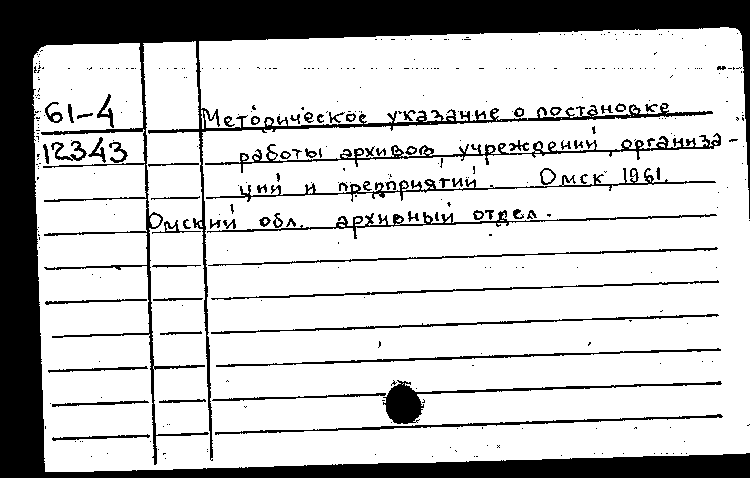 61-4 Меторическое указание о постановке
12343 работы архивов, учреждений, организа-
ций и предприятий. Омск, 1961.
Омский обл. архивный отдел.